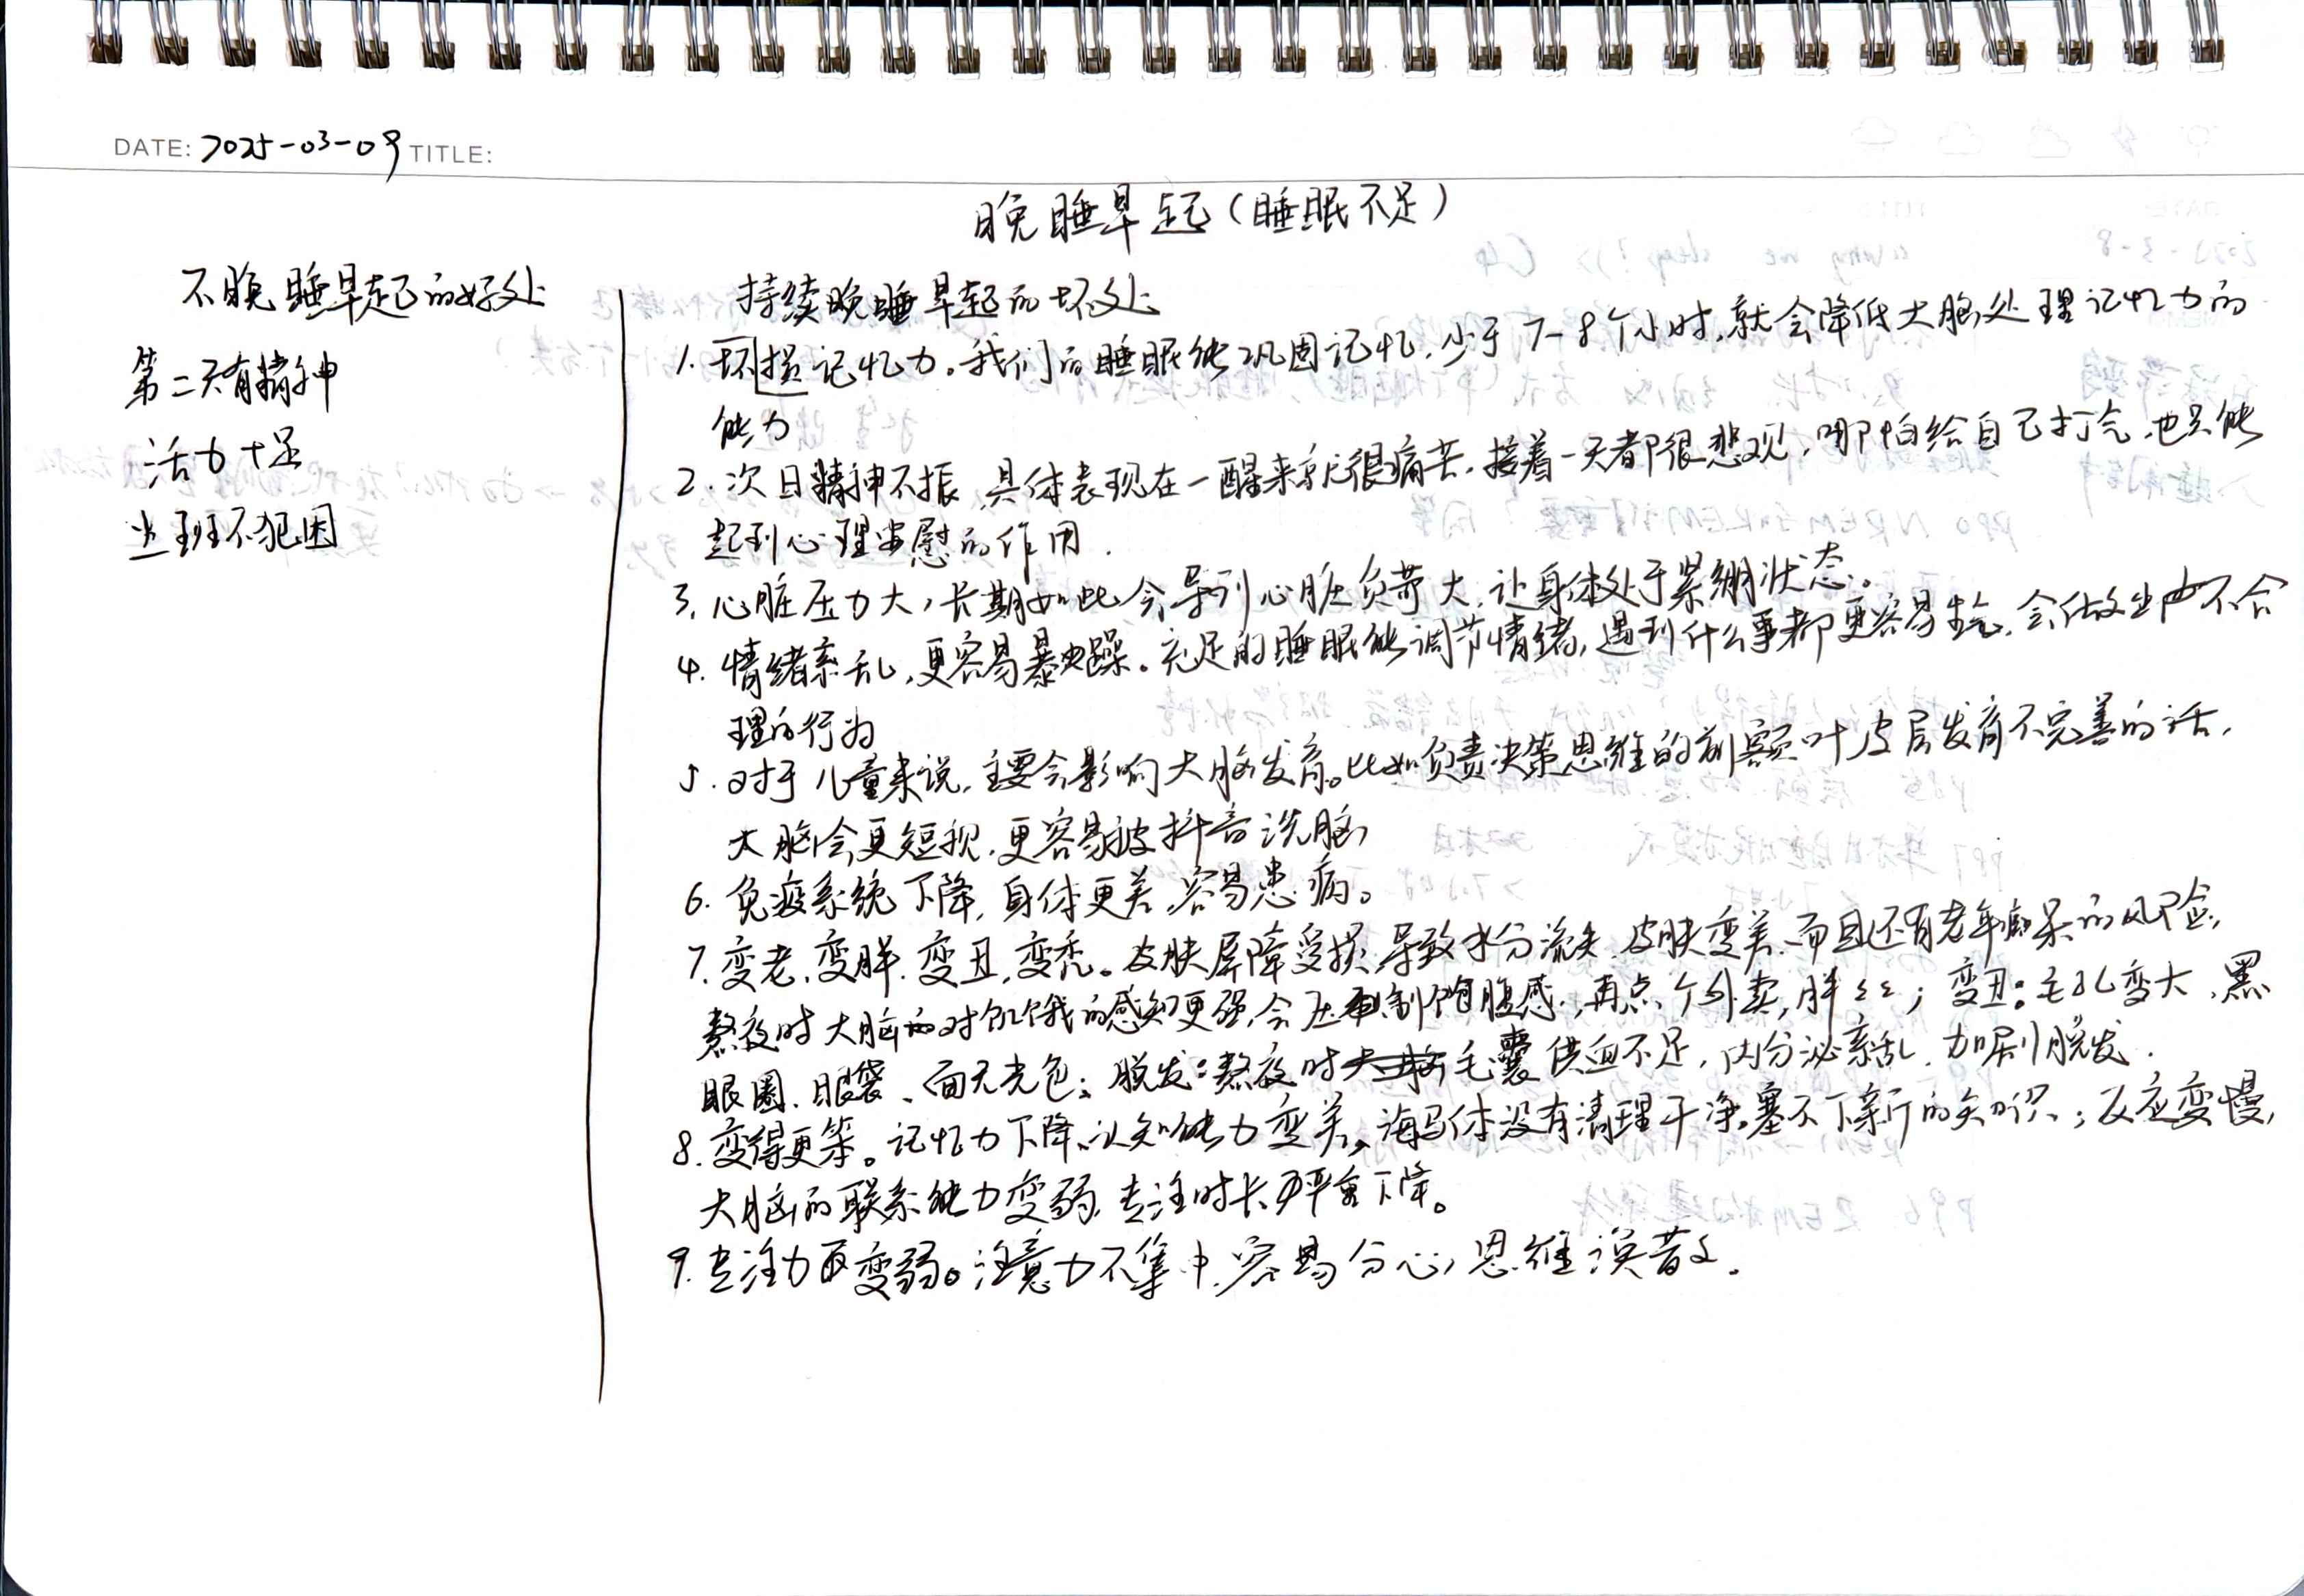 DATE: 2025-03-09 TITLE:
晚睡早起(睡眠不足)
不晚睡早起的好处
第二天有精神
活力十足
上班不犯困
持续晚睡早起的坏处
1. 坏损记忆力。我们的睡眠能巩固记忆,少于7-8个小时,就会降低大脑处理记忆力的
能力
2. 次日精神不振,具体表现在一醒来就很痛苦,接着一天都很悲观,哪怕给自己打气,也只能
起到心理安慰的作用.
3. 心脏压力大,长期如此会导引心脏负荷大,让身体处于紧绷状态。
4. 情绪紊乱,更容易暴躁。充足的睡眠能调节情绪,遇到什么事都更容易生气,会做出不合
理的行为
5. 对于儿童来说,主要会影响大脑发育。比如负责决策思维的前额叶皮层发育不完善的话,
大脑会更短视,更容易被抖音洗脑,
6. 免疫系统下降,身体更差,容易患病。
7. 变老、变胖、变丑,变秃。皮肤屏障受损,导致水分流失,皮肤变差、而且还有老年痴呆的风险,
熬夜时大脑对饥饿的感知更强,会压制饱腹感,再点个外卖,胖;变丑:毛孔变大,黑
眼圈、眼袋、面无光色;脱发:熬夜时毛囊供血不足,内分泌紊乱,加剧脱发.
8. 变得更笨。记忆力下降、认知能力变差,海马体没有清理干净,塞不下新的知识;反应变慢,
大脑的联系能力变弱,专注时长严重下降。
9. 专注力变弱。注意力不集中,容易分心,思维涣散。